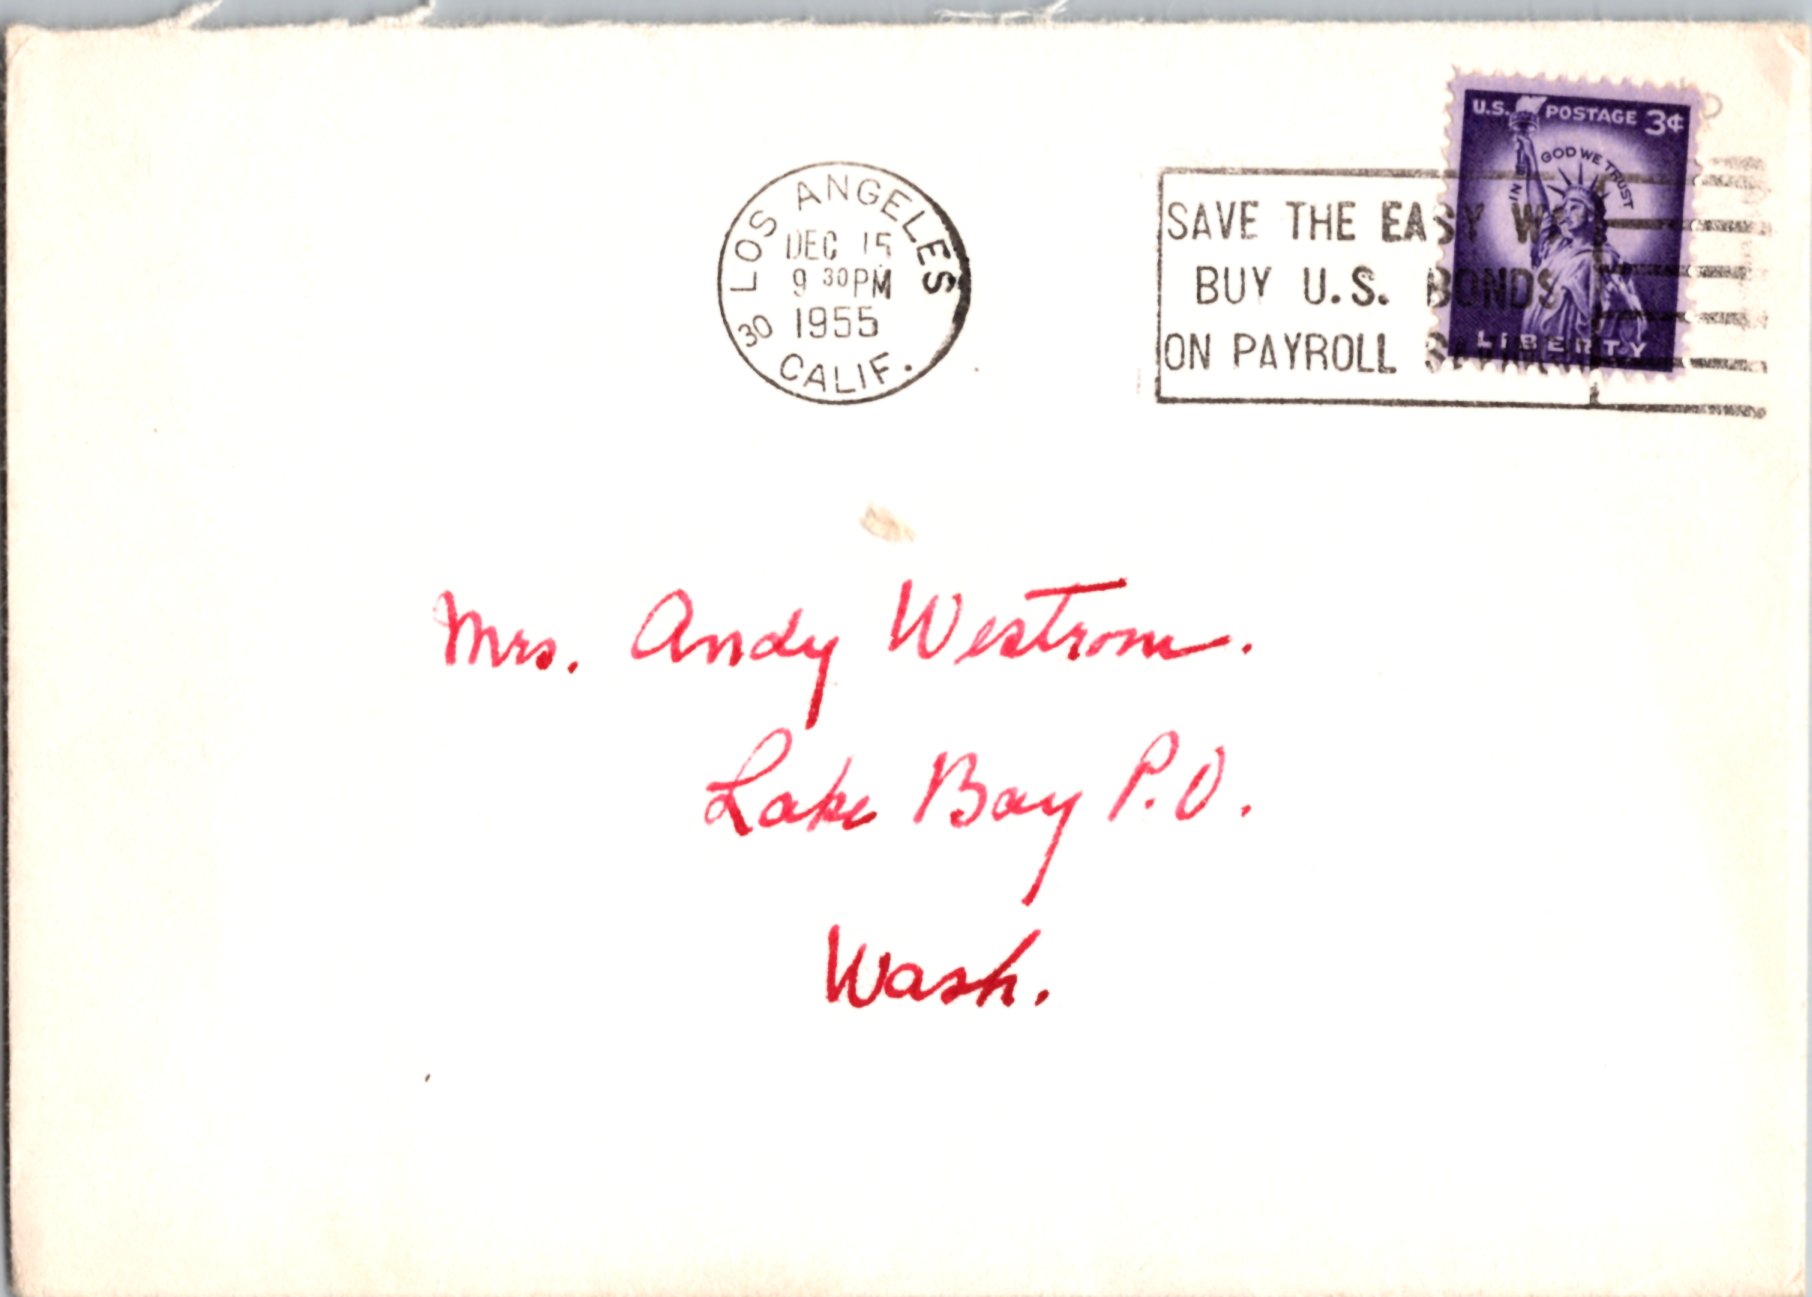 LOS ANGELES
DEC 15
9 30PM
1955
30 CALIF.
SAVE THE EASY WAY
BUY U.S. BONDS
ON PAYROLL SAVINGS
U.S. POSTAGE 3¢
IN GOD WE TRUST
LIBERTY
Mrs. Andy Westrom.
Lake Bay P.O.
Wash.